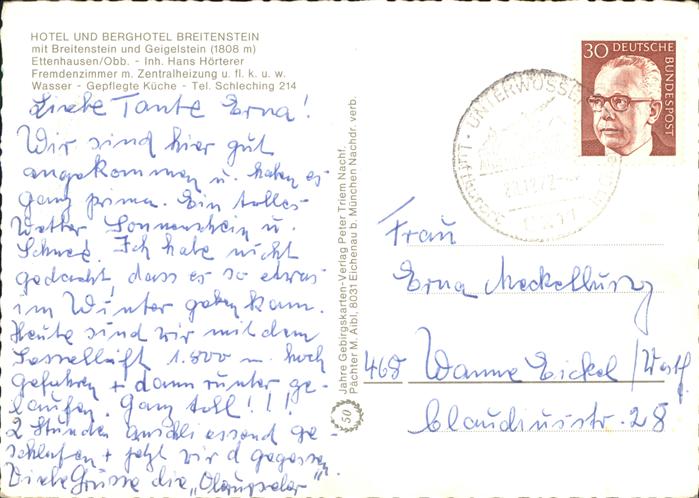 HOTEL UND BERGHOTEL BREITENSTEIN
mit Breitenstein und Geigelstein (1808 m)
Ettenhausen/Obb. - Inh. Hans Hörterer
Fremdenzimmer m. Zentralheizung u. fl. k. u. w.
Wasser - Gepflegte Küche - Tel. Schleching 214
Liebe Tante Erna!
Wir sind hier gut
angekommen u. haben es
ganz prima. Ein tolles
Wetter Sonnenschein u.
Schnee. Ich habe nicht
gedacht, dass es so etwas
im Winter geben kann.
Heute sind wir mit dem
Sessellift 1.800 m. hoch
gefahren + dann runter ge-
laufen. Ganz toll!!!
2 Stunden anschliessend ge-
schlafen + jetzt wird gegessen
Viele Grüsse die
50 Jahre Gebirgskarten-Verlag Peter Triem Nachf.
Pächter M. Aibl, 8031 Eichenau b. München Nachdr. verb.
30 DEUTSCHE
BUNDESPOST
UNTERWÖSSEN
Frau
Erna
468 Wanne Eickel/Westf
Claudiusstr. 28